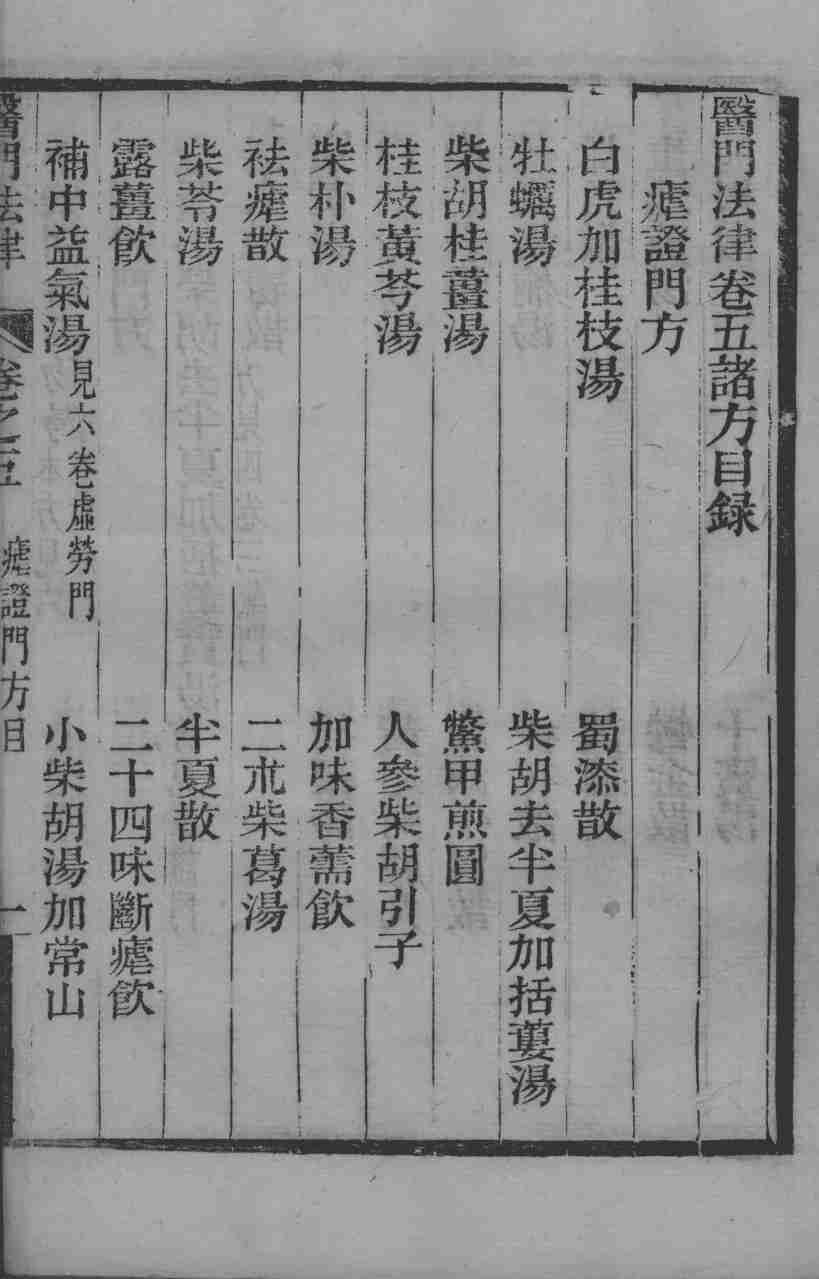 醫門法律卷五諸方目録
瘧證門方
白虎加桂枝湯　蜀漆散
牡蠣湯　柴胡去半夏加括蔞湯
柴胡桂薑湯　鱉甲煎圓
桂枝黃芩湯　人參柴胡引子
柴朴湯　加味香薷飲
祛瘧散　二朮柴葛湯
柴苓湯　半夏散
露薑飲　二十四味斷瘧飲
補中益氣湯見六卷虛勞門　小柴胡湯加常山
醫門法律　卷之五　瘧證門方目　一